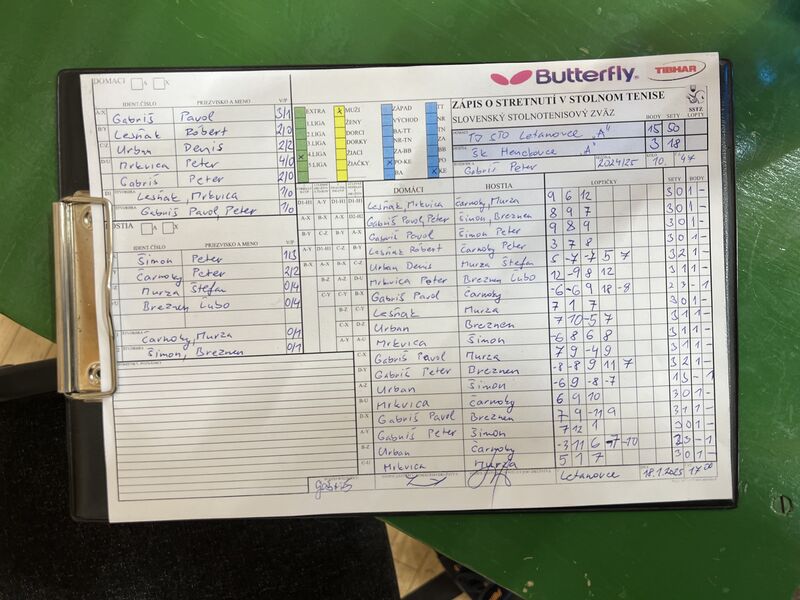 DOMÁCI A X
IDENT. ČÍSLO PRIEZVISKO A MENO V/P
A/X Gabriš Pavol 3/1
B/Y Lesňák Róbert 2/0
C/Z Urban Denis 2/2
Mrkvica Peter 4/0
Gabriš Peter 2/0
Lesňák, Mrkvica 1/0
Gabriš Pavol, Peter 1/0
HOSTIA A X
IDENT. ČÍSLO PRIEZVISKO A MENO V/P
Šimon Peter 1/3
Čarnoky Peter 2/2
Murza Štefan 0/4
Breznen Ľubo 0/4
Čarnoky, Murza 0/1
Šimon, Breznen 0/1
EXTRA
1.LIGA
2.LIGA
3.LIGA
4.LIGA
5.LIGA
MUŽI
ŽENY
DORCI
DORKY
ŽIACI
ŽIAČKY
ZÁPAD
VÝCHOD
BA-TT
NR-TN
ZA-BB
PO-KE
BA
TT
NR
TN
ZA
BB
PO
KE
Butterfly TIBHAR
ZÁPIS O STRETNUTÍ V STOLNOM TENISE
SLOVENSKÝ STOLNOTENISOVÝ ZVÄZ
SSTZ
BODY SETY LOPTY
TJ STO Letanovce "A" 15 50
ŠK Henckovce "A" 3 18
Gabriš Peter 2024/25 10.
DOMÁCI HOSTIA LOPTIČKY SETY BODY
Lesňák, Mrkvica Čarnoky, Murza 9 6 12 3 0 1 -
Gabriš Pavol, Peter Šimon, Breznen 8 9 7 3 0 1 -
Gabriš Pavol Šimon Peter 9 8 9 3 0 1 -
Lesňák Róbert Čarnoky Peter 3 7 8 3 0 1 -
Urban Denis Murza Štefan 5 -7 -7 5 7 3 2 1 -
Mrkvica Peter Breznen Ľubo 12 -9 8 12 3 1 1 -
Gabriš Pavol Čarnoky -6 -6 9 18 -8 2 3 - 1
Lesňák Murza 7 1 7 3 0 1 -
Urban Breznen 7 10 -5 7 3 1 1 -
Mrkvica Šimon -6 8 6 8 3 1 1 -
Gabriš Pavol Murza 7 9 -4 9 3 1 1 -
Gabriš Peter Breznen -8 -8 9 11 7 3 2 1 -
Urban Šimon -6 9 -8 -7 1 3 - 1
Mrkvica Čarnoky 6 9 10 3 0 1 -
Gabriš Pavol Breznen 7 9 -11 9 3 1 1 -
Gabriš Peter Šimon 7 12 1 3 0 1 -
Urban Čarnoky -3 11 6 -7 -10 2 3 - 1
Mrkvica Murza 5 1 7 3 0 1 -
Letanovce 18.1.2025 17:00